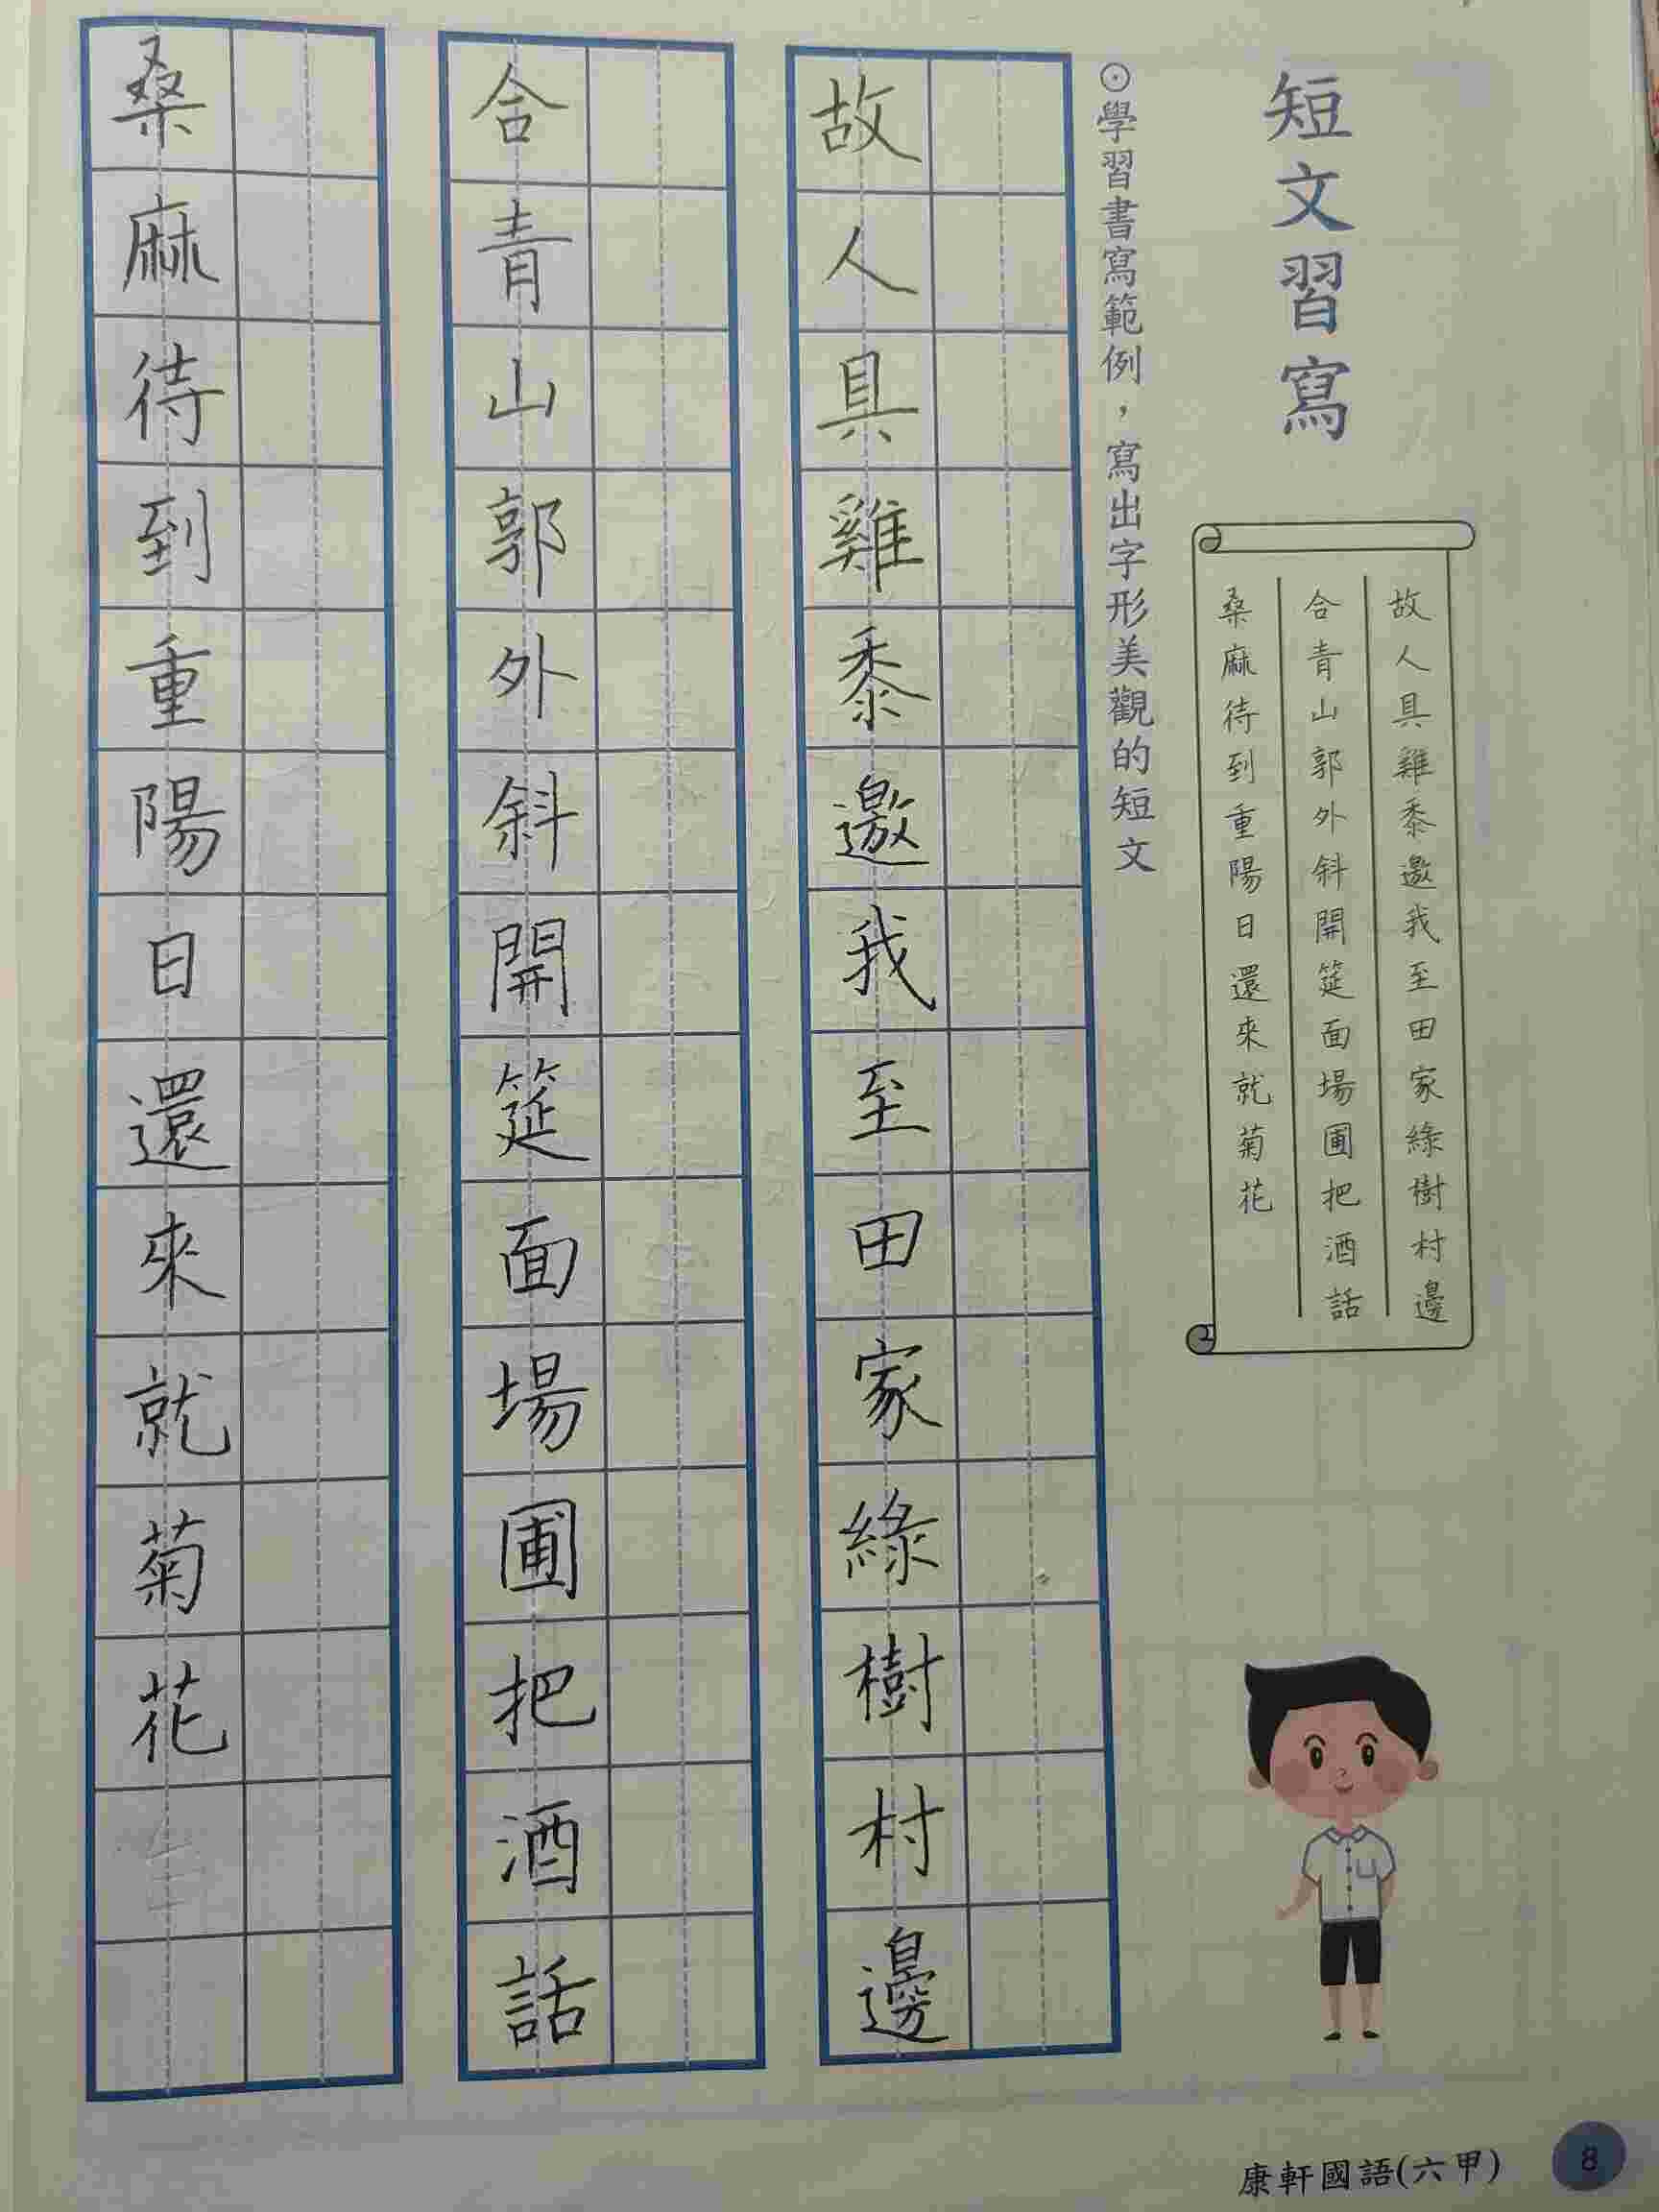 短文習寫
⊙學習書寫範例，寫出字形美觀的短文
故人具雞黍邀我至田家綠樹村邊
合青山郭外斜開筵面場圃把酒話
桑麻待到重陽日還來就菊花
故人具雞黍邀我至田家綠樹村邊
合青山郭外斜開筵面場圃把酒話
桑麻待到重陽日還來就菊花
康軒國語(六甲)
8